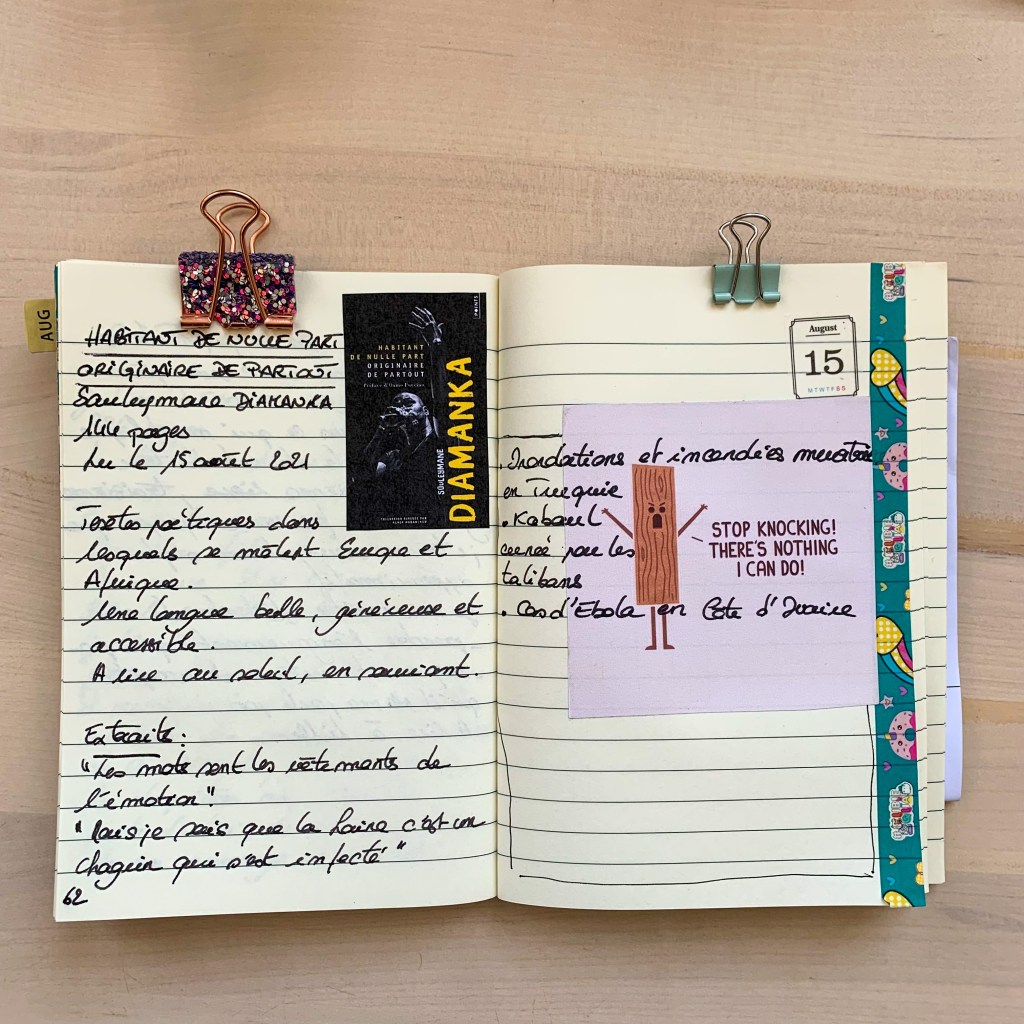 AUG
HABITANT DE NULLE PART
ORIGINAIRE DE PARTOUT
Souleymane DIAMANKA
144 pages
Lu le 15 août 2021
Textes poétiques dans
lesquels se mêlent Europe et
Afrique.
Une langue belle, généreuse et
accessible.
A lire au soleil, en souriant.
Extraits :
"Les mots sont les vêtements de
l'émotion"
"Mais je sais que la haine c'est un
chagrin qui s'est infecté"
62
POINTS
HABITANT
DE NULLE PART
ORIGINAIRE
DE PARTOUT
Préface d'Oxmo Puccino
SOULEYMANE
DIAMANKA
August
15
MTWTFSS
. Inondations et incendies meurtriers
en Turquie
. Kaboul
cernée par les
talibans
. Cas d'Ebola en Côte d'Ivoire
STOP KNOCKING!
THERE'S NOTHING
I CAN DO!